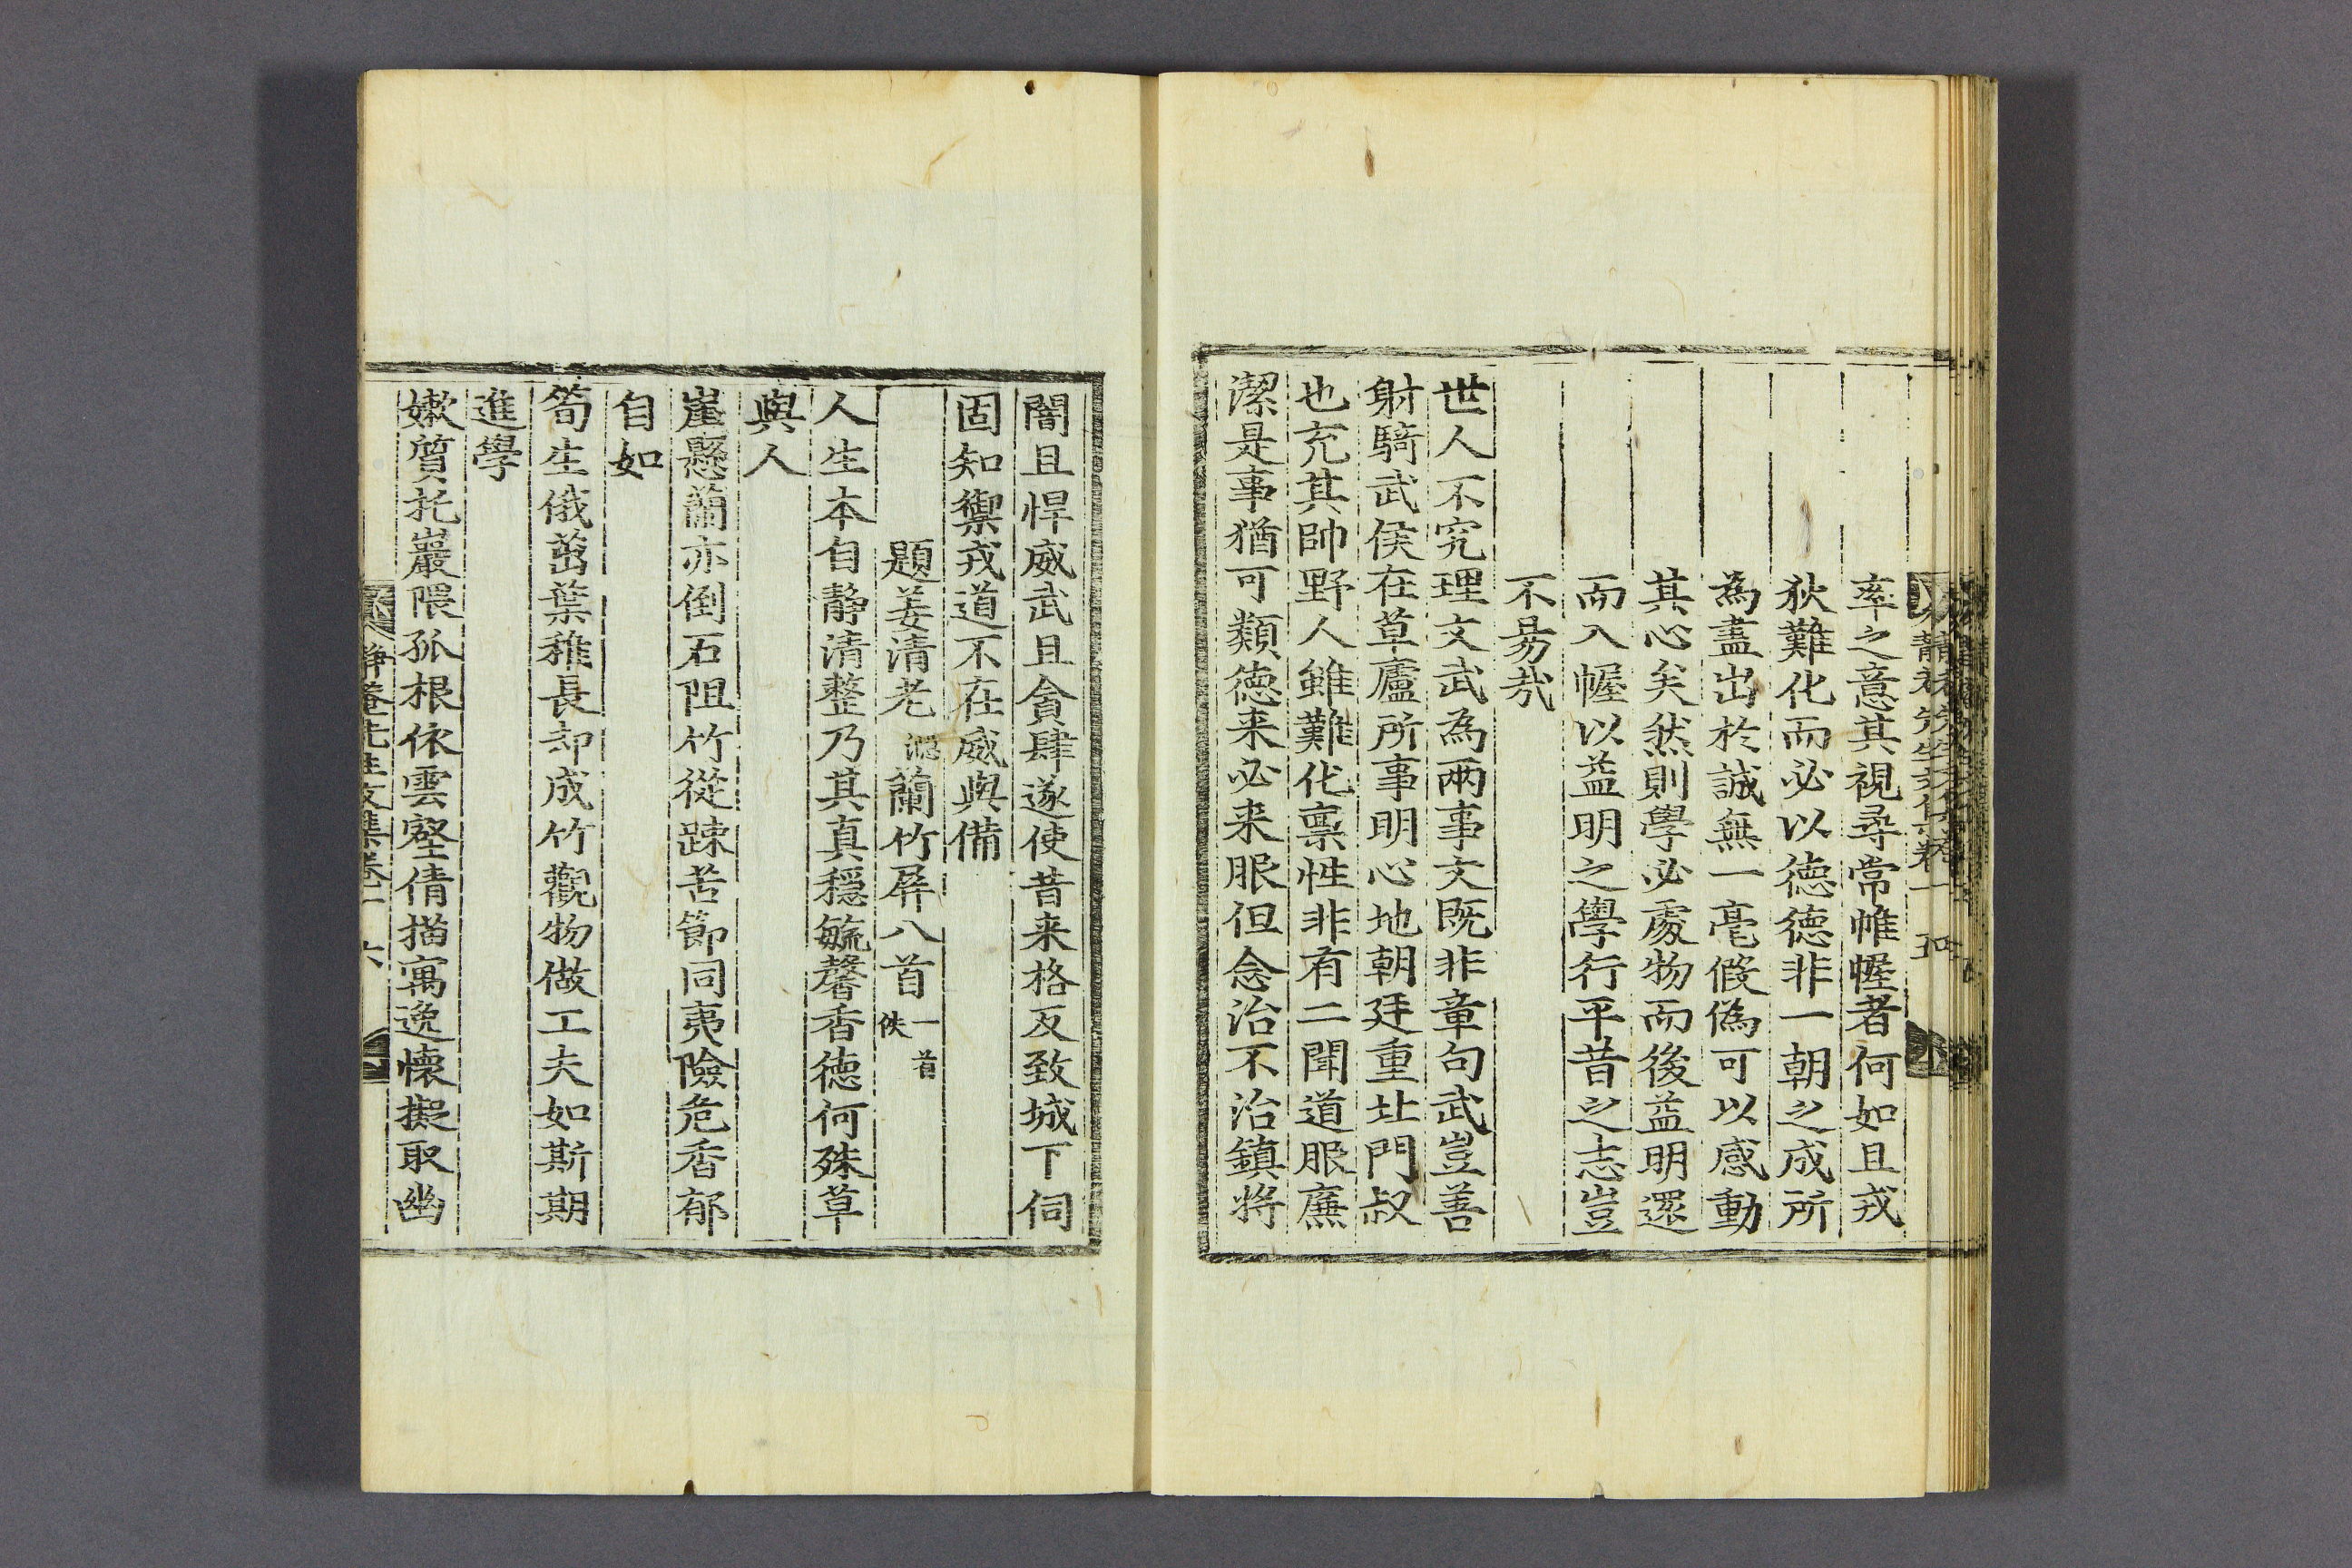 靜菴先生文集卷一 五
率之意其視尋常帷幄者何如且戎
狄難化而必以德德非一朝之成所
為盡出於誠無一毫假偽可以感動
其心矣然則學必處物而後益明還
而入幄以益明之學行平昔之志豈
不易哉
世人不究理文武為兩事文既非章句武豈善
射騎武侯在草廬所事明心地朝廷重北門叔
也充其帥野人雖難化禀性非有二聞道服廉
潔是事猶可類德来必来服但念治不治鎮将
闇且悍威武且貪肆遂使昔来格反致城下伺
固知禦戎道不在威與備
題姜清老 蘭竹屏八首 一首佚
人生本自靜清整乃其真穩毓馨香德何殊草
與人
崖懸蘭亦倒石阻竹從踈苦節同夷險危香郁
自如
筍生俄茁葉稚長却成竹觀物做工夫如斯期
進學
嫩質托巖隈孤根依雲壑倩描寓逸懷擬取幽
靜菴先生文集卷一 六